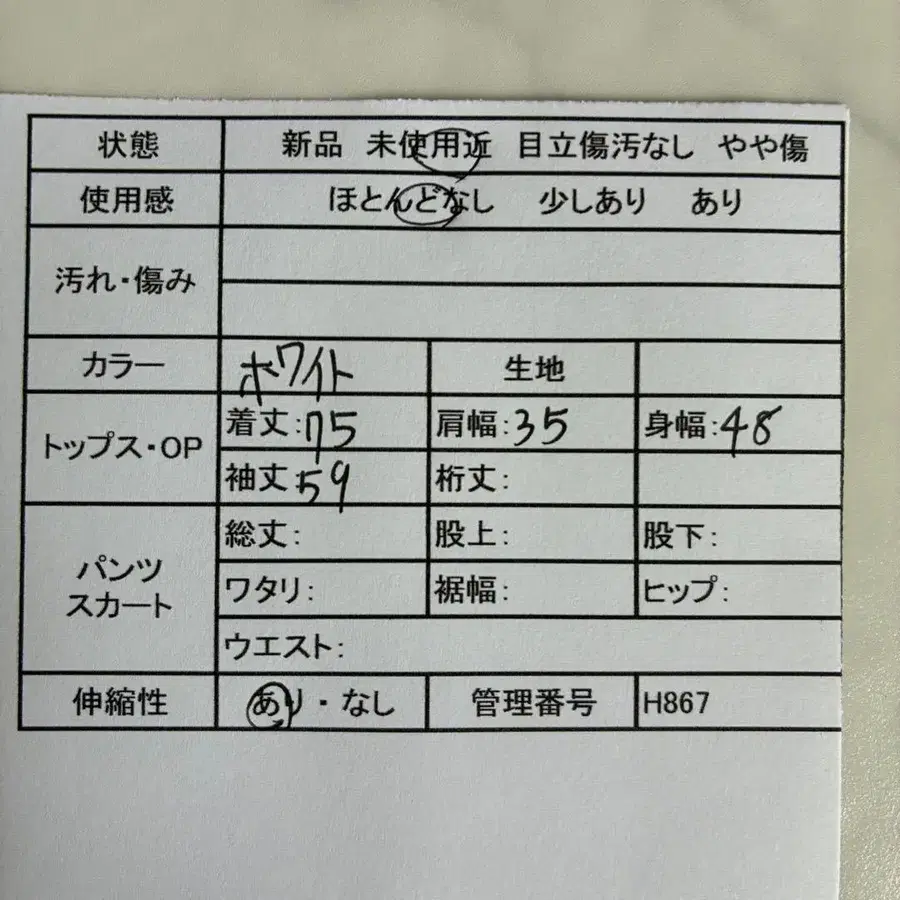 状態 新品 未使用近 目立傷汚なし やや傷
使用感 ほとんどなし 少しあり あり
汚れ・傷み
カラー ホワイト 生地
トップス・OP 着丈:75 肩幅:35 身幅:48
袖丈:59 裄丈:
パンツ スカート 総丈: 股上: 股下:
ワタリ: 裾幅: ヒップ:
ウエスト:
伸縮性 あり・なし 管理番号 H867